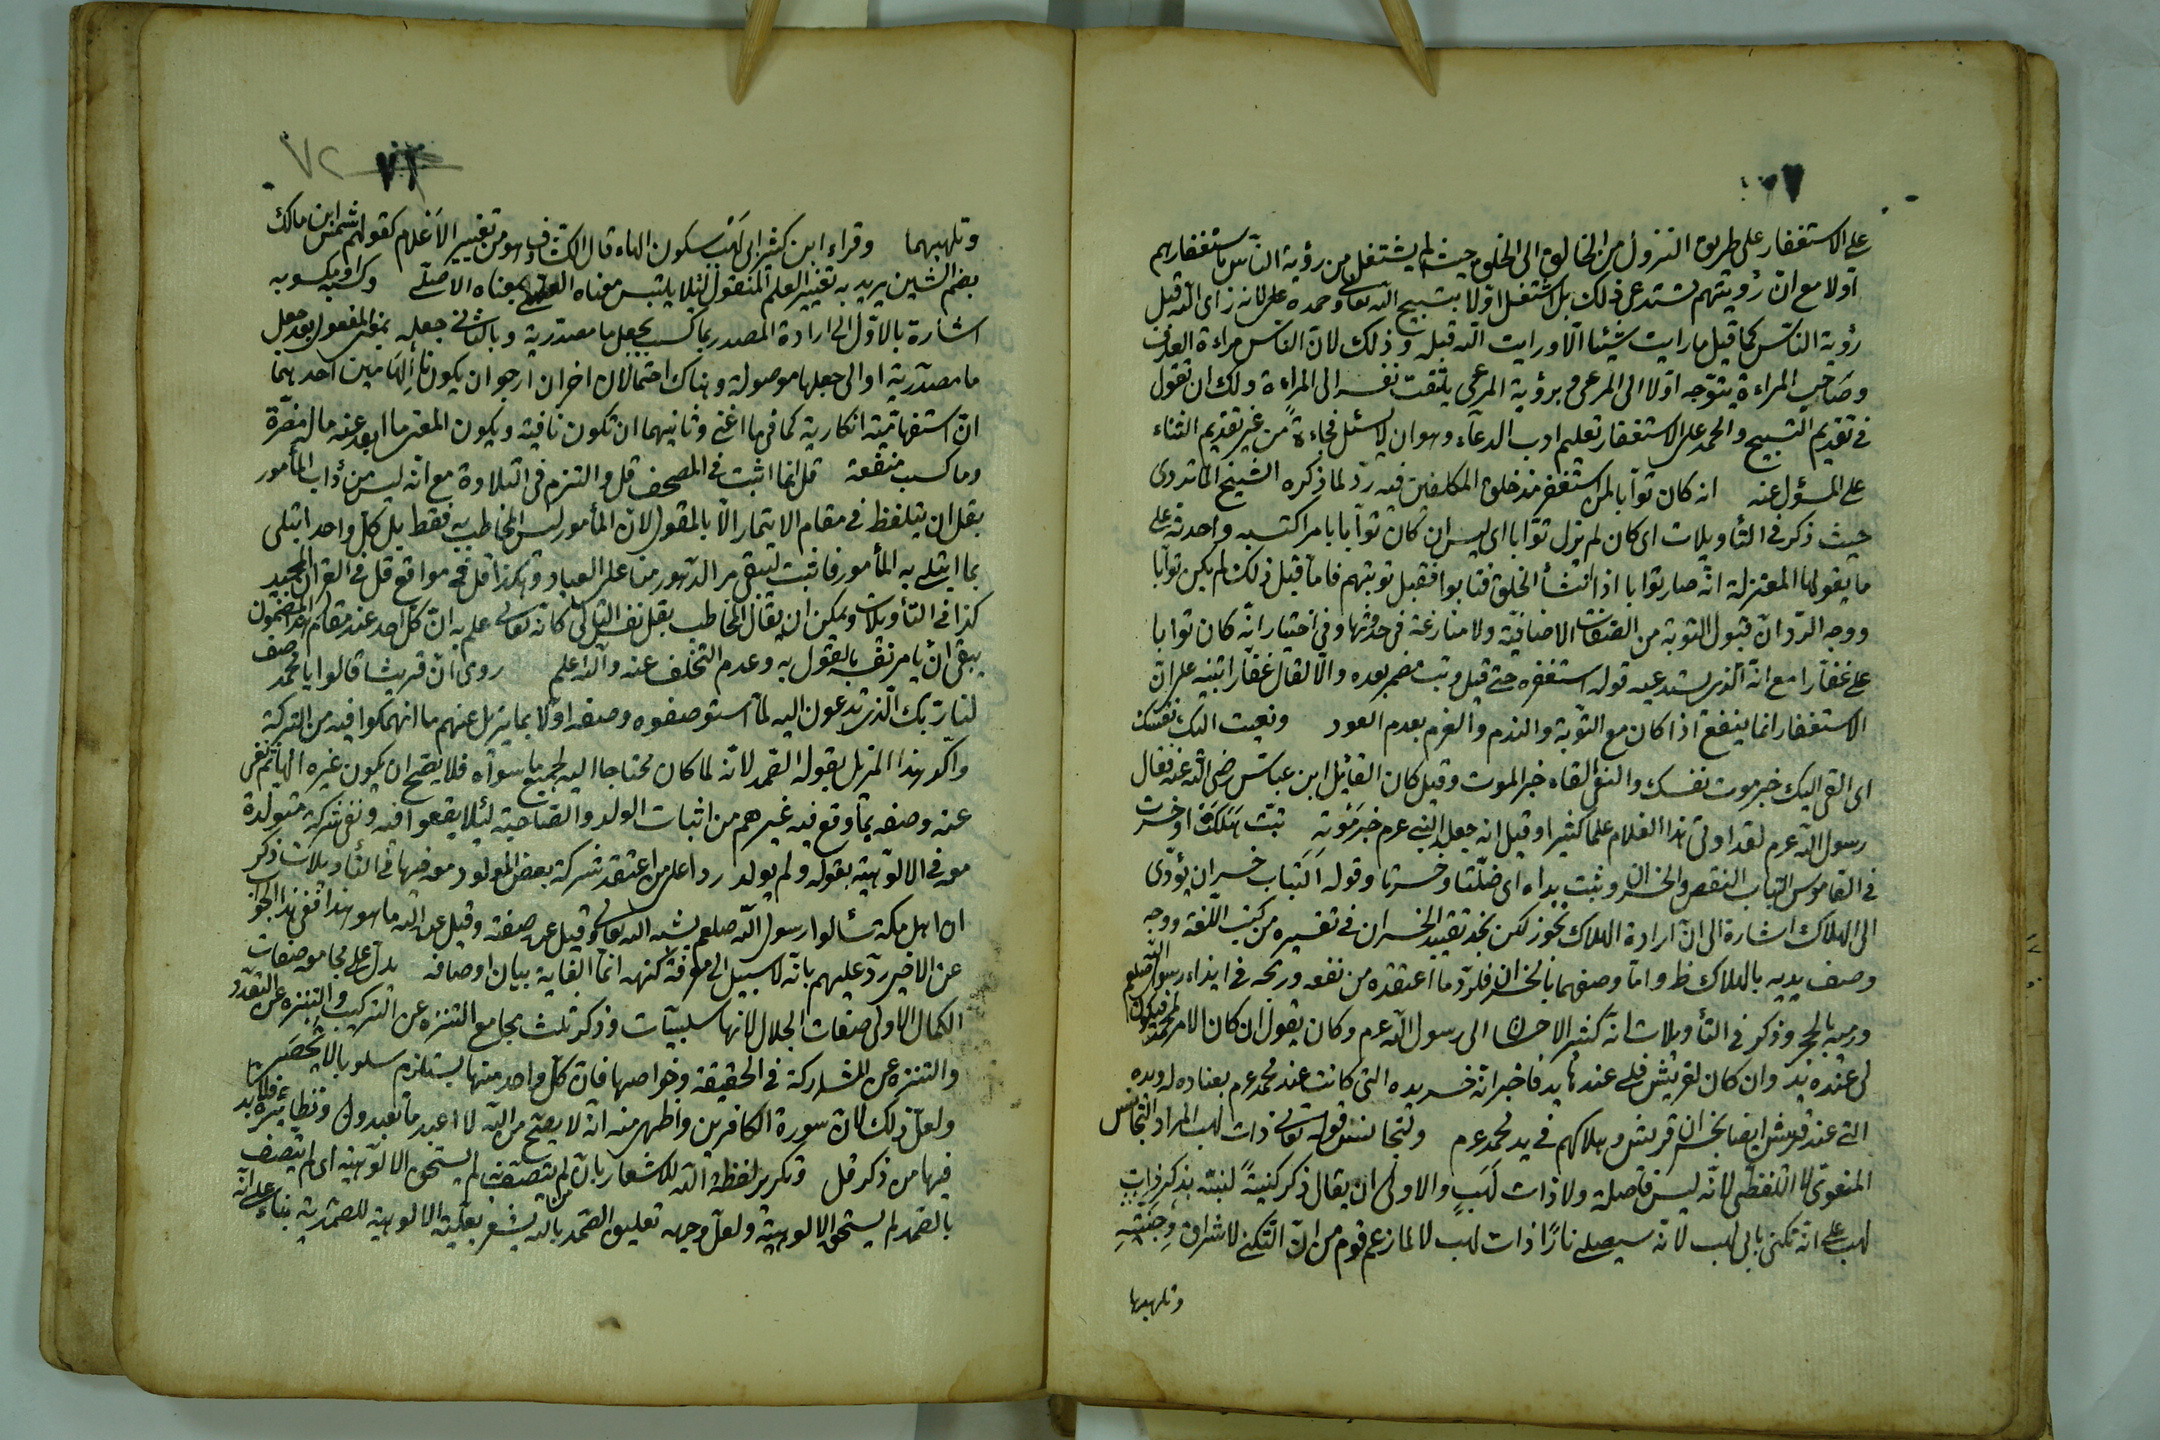 على الاستغفار على طريق النزول من الخالق الى الخلق حيث لم يشتغل من رؤية الناس باستغفارهم
اولا مع ان رؤيتهم تستدعى ذلك بل اشتغل اولا بتسبيح الله تعالى وحمده على لانه راى الله قبل
رؤية الناس كما قيل ما رايت شيئا الا ورايت الله قبله وذلك لان الناس مراءة العارف
وصاحب المراءة يتوجه اولا الى المرءى وبرؤية المرءى يلتفت نفسه الى المراءة ولك ان تقول
فى تقديم التسبيح والحمد على الاستغفار تعليم ادب الدعاء وهو ان لا يسئل فجاءة من غير تقديم الثناء
على المسؤل عنه انه كان توابا لمن استغفر منذ خلق المكلفين فيه رد لما ذكره الشيخ الماتريدى
حيث ذكر فى التأويلات اى كان لم يزل توابا اى ليس ان كان توابا بامر اكتسبه واحدثه على
ما يقوله المعتزلة انه صار توابا اذ انشأ الخلق فتابوا فقبل توبتهم فاما قبل ذلك لم يكن توابا
ووجه الرد ان قبول التوبة من الصفات الاضافية ولا منازعة فى حدوثها وفى اختيار انه كان توابا
على غفارا مع انه الذى يستدعيه قوله استغفره حتى قيل وتب مضمر بعده والا لقال غفارا تنبيه على ان
الاستغفار انما ينفع اذا كان مع التوبة والندم والعزم بعدم العود ونعيت اليك نفسك
اى القى اليك خبر موت نفسك والنعى القاء خبر الموت وقيل كان القائل ابن عباس رضى الله عنه فقال
رسول الله عم لقد اوتى هذا الغلام علما كثيرا وقيل انه جعل النبى عم خبر موته تبت هلكت او خسرت
فى القاموس التباب النقص والخسران وتبت يداه اى ضلتا وخسرتا وقوله التباب خسران يؤدى
الى الهلاك اشارة الى ان ارادة الهلاك تجوز لكن نجد تقييد الخسران فى تفسيره من كتب اللغة ووجه
وصف يديه بالهلاك ظ واما وصفهما بالخسران فلرد ما اعتقده من نفعه وربحه فى ايذاء رسول الله صلعم
ورميه بالحجر وذكر فى التأويلات انه كثير الاحسان الى رسول الله عم وكان يقول ان كان الامر لمحمد فيكون
لى عنده يد وان كان لقريش فلى عندها يد فاخبر انه خسر يده التى كانت عند محمد عم بعناده له ويده
التى عند قريش ايضا بخسران قريش وهلاكهم فى يد محمد عم ولتجانس قوله تعالى ذات لهب المراد التجانس
المعنوى لا اللفظى لانه ليس فاصلة ولا ذات لهب والاولى ان يقال ذكر كنيته لنبته بذكر ذات
لهب على انه تكنى بابى لهب لانه سيصلى نارا ذات لهب لا لما زعم قوم من ان التكنى لاشراق وجنتيه
وتلهبهما
٧١
٧٢
وتلهبهما وقراء ابن كثير ابى لهب بسكون الهاء قال الكشاف وهو من تغيير الاعلام كقولهم شمس ابن مالك
بضم الشين يريد به تغيير العلم المنقول لئلا يلتبس معناه العلمى بمعناه الاصلى وكسبه او مكسوبه
اشارة بالاول الى ارادة المصدر بما كسب بجعل ما مصدرية وبالثانى جعله بمعنى المفعول بعد جعل
ما مصدرية او الى جعلها موصولة وهناك احتمالان اخران ارجو ان يكونا الهامين احدهما
ان استفهامية انكارية كما فى ما اغنى وثانيهما ان تكون نافية ويكون المعنى ما ابعد عنه ماله مضرة
وما كسب منفعة قل انما اثبت فى المصحف قل والتزم فى التلاوة مع انه ليس من ذاب المأمور
بقل ان يتلفظ فى مقام الايتمار الا بالمقول لان المأمور ليس المخاطب به فقط بل كل واحد ابتلى
بما ابتلى به المأمور فاثبت ليبقى مر الدهور منا على العباد وهكذا قل فى مواقع قل فى القران المجيد
كذا فى التأويلات ويمكن ان يقال المخاطب بقل نفس التالى كانه تعالى علم به ان كل احد عند مقام هذا المضمون
ينبغى ان يأمر نفسه بالقول به وعدم التخلف عنه والله اعلم روى ان قريشا قالوا يا محمد صف
لنا ربك الذى تدعون اليه لما استوصفوه وصفه اولا بما ينزل عنهم ما انهمكوا فيه من الشركة
واكد هذا المزيل بقوله الصمد لانه لما كان محتاجا اليه لجميع ما سواه فلا يصح ان يكون غيره الها ثم نفى
عنه وصفه بما وقع فيه غيرهم من اثبات الولد والصاحبة لئلا يقعوا فيه ونفى شركة متولدة
معه فى الالوهية بقوله ولم يولد رد اعلى من اعتقد شركة بعض المولود معه فيها فى التأويلات ذكر
ان اهل مكة سألوا رسول الله صلعم نسبة الله تعالى وقيل عن صفته وقيل عن الله ما هو هذا ففى هذا الجو
عن الاخير رد عليهم بانه لا سبيل الى معرفة كنهه انما الغاية بيان اوصافه يدل على مجامع صفات
الكمال الاولى صفات الجلال لانها سلبيات وذكر ثلث مجامع التنزه عن التركيب والتنزه عن التعدد
والتنزه عن المشاركة فى الحقيقة وخواصها فان كل واحد منها يستلزم سلوبا لا تحصى
ولعل ذلك لان سورة الكافرين واظهر منه انه لا يصح من الله لا اعبد ما تعبدون ونظائره فلا بد
فيها من ذكر قل وتكرير لفظة الله للاشعار بان من لم يتصف به لم يستحق الالوهية اى لم يتصف
بالصمد لم يستحق الالوهية ولعل وجهه تعليق الصمد بالله يشعر بعلية الالوهية للصمدية بناء على انه